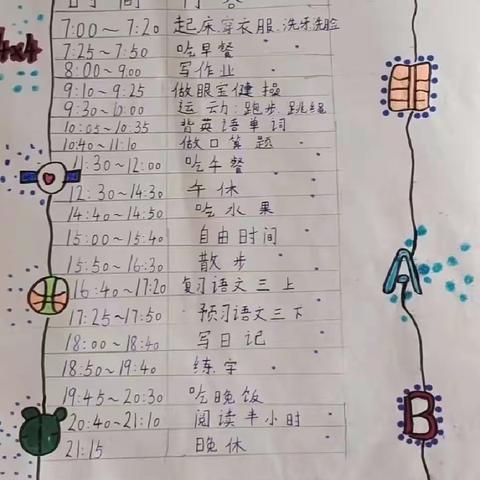 时间 内容
4x4
7:00~7:20 起床.穿衣服.洗牙洗脸
7:25~7:50 吃早餐
8:00~9:00 写作业
9:10~9:25 做眼宝健操
9:30~10:00 运动:跑步.跳绳
10:05~10:35 背英语单词
10:40~11:10 做口算题
11:30~12:00 吃午餐
12:30~14:30 午休
14:40~14:50 吃水果
15:00~15:40 自由时间
15:50~16:30 散步
16:40~17:20 复习语文三上
17:25~17:50 预习语文三下
18:00~18:40 写日记
18:50~19:40 练字
19:45~20:30 吃晚饭
20:40~21:10 阅读半小时
21:15 晚休
A
B